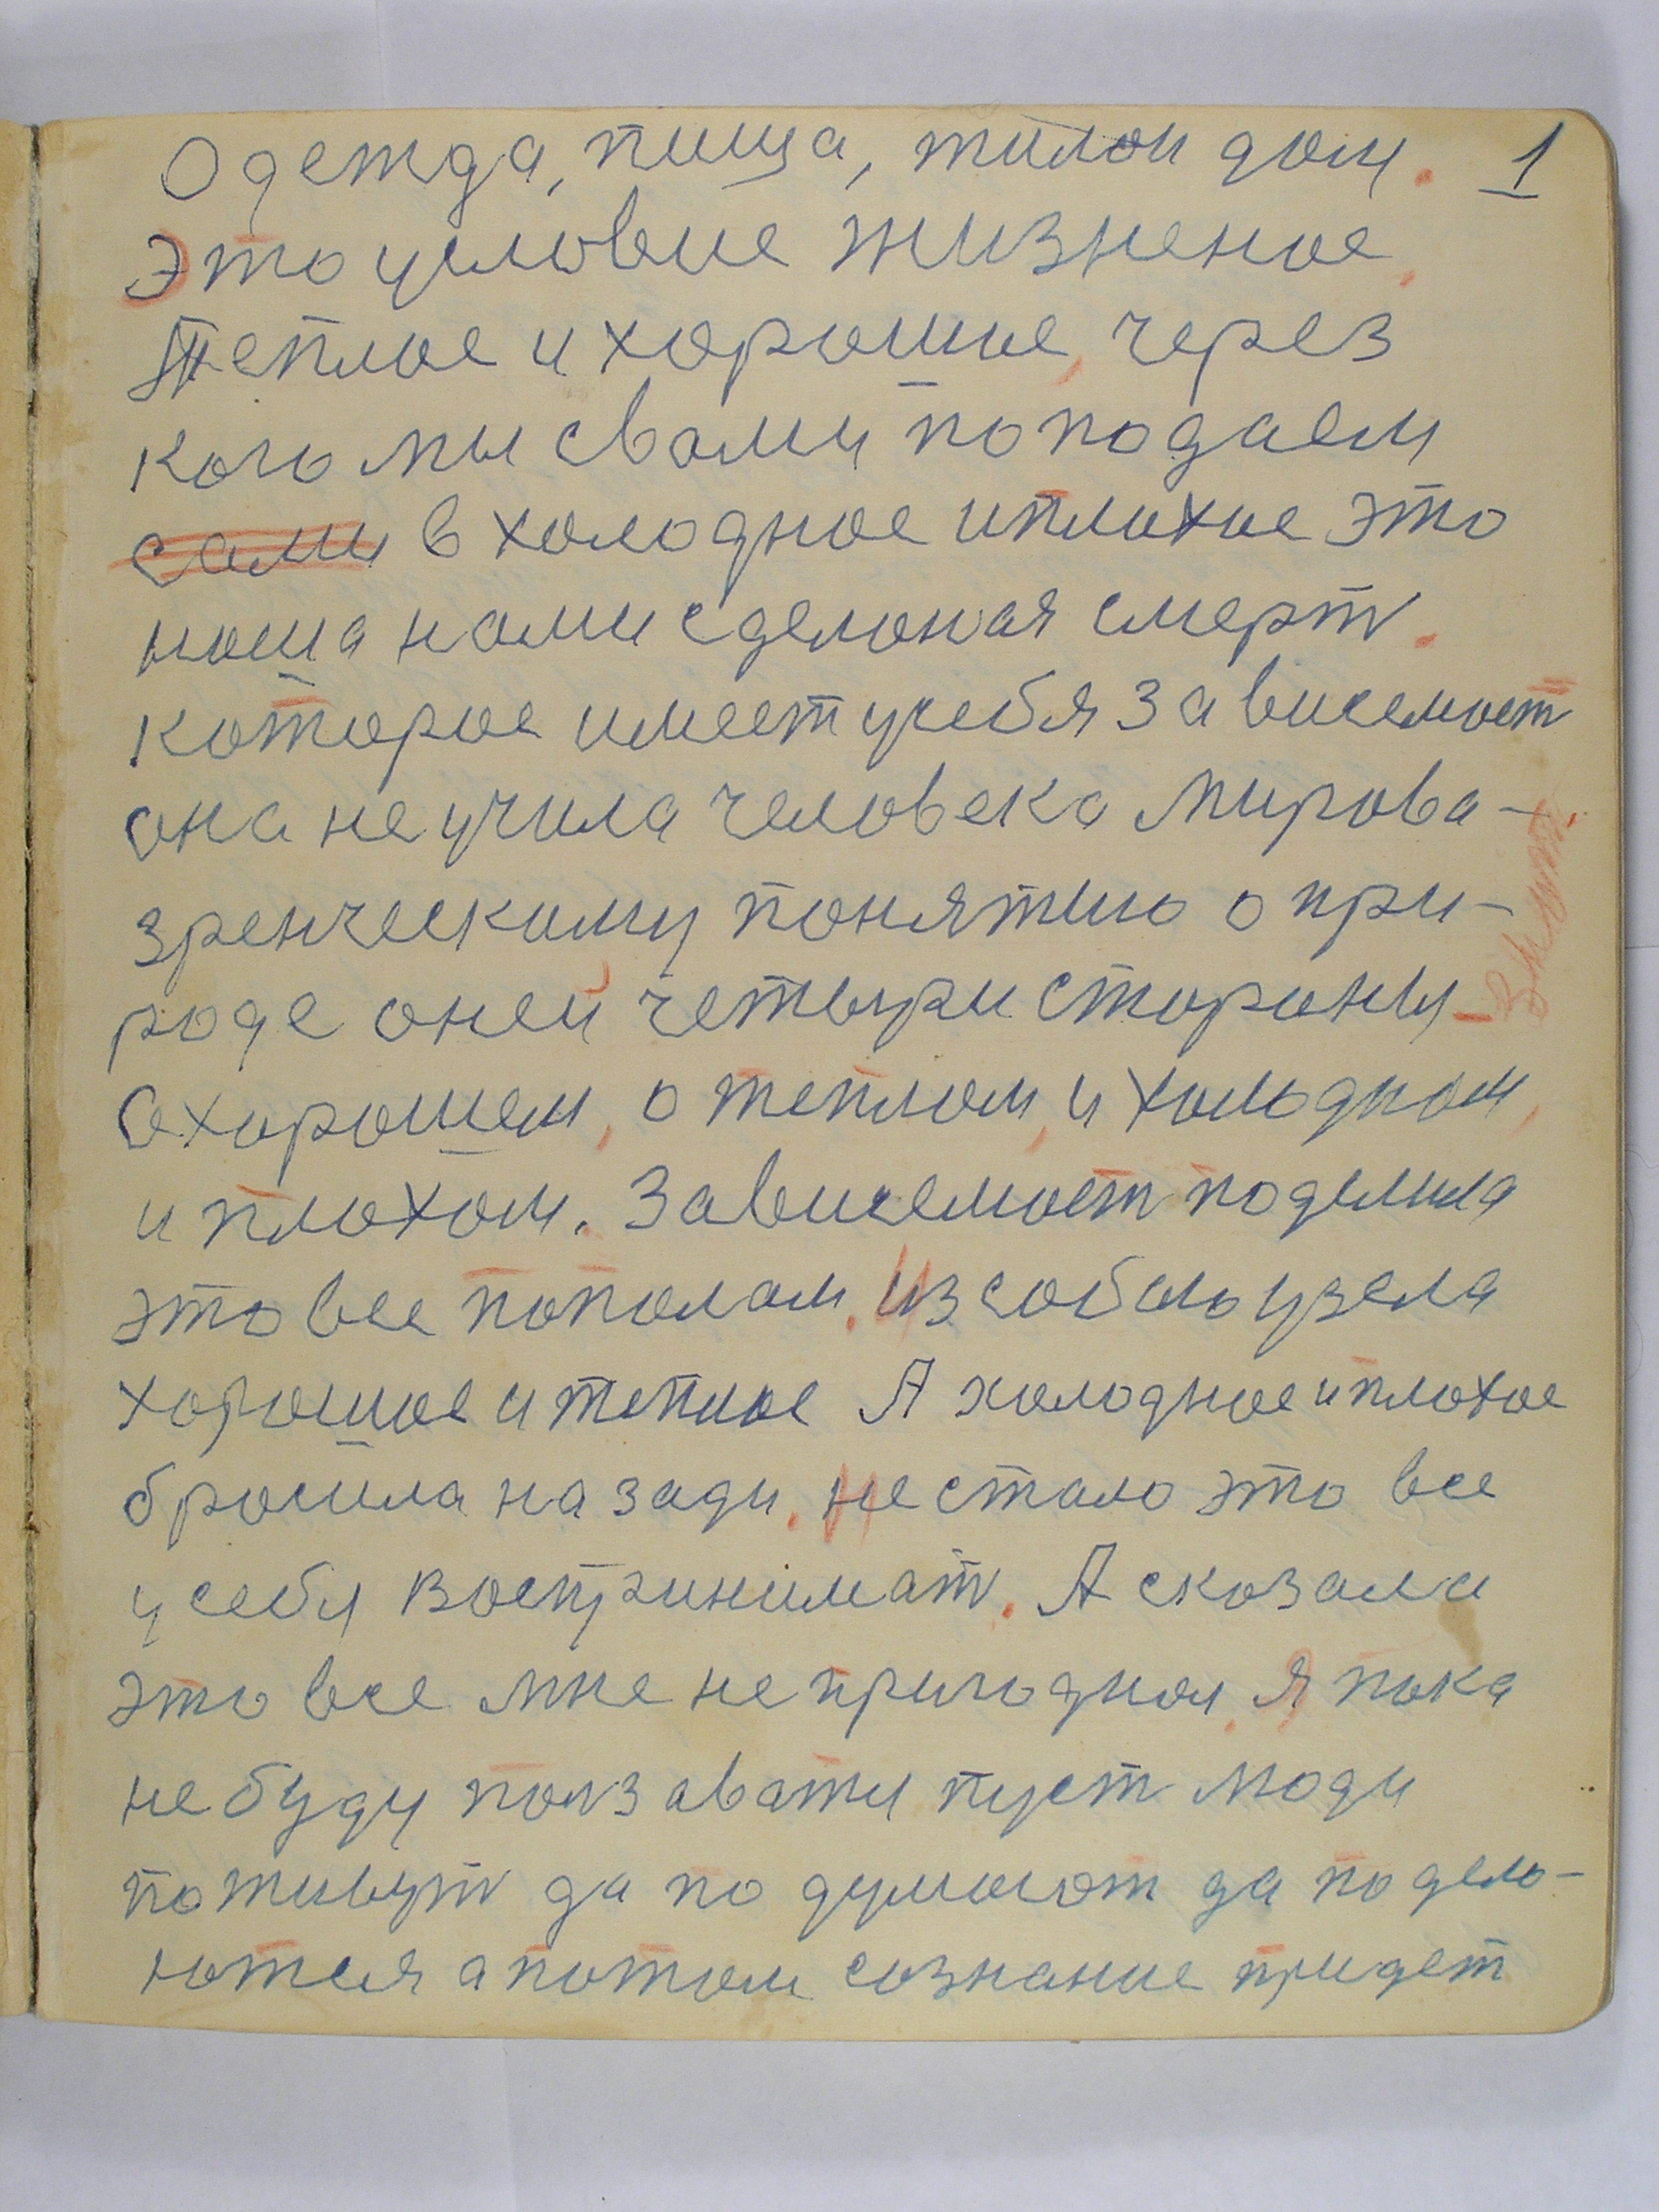 Одежда, пища, жилой дом. 1
Это условие жизненое
Теплое и хорошое, через
кого мы свами поподаем
сами в холодное и плохое это
наша нами сделоная смерт.
которое имеет усебя зависемост
она не учила человека мирова-
зренческому понятию о при-
роде оней четыри стороны-
охорошем, о теплом, и холодном,
и плохом. Зависемост поделила
это все пополам. из собою узела
хорошое и теплое А холодное и плохое
бросила назади. не стало это все
у себя воспринимат. А сказала
это все мне не пригодное, я пока
не буду ползавати пуст люди
поживут да по думают да по дело-
ются а потом сознание придет